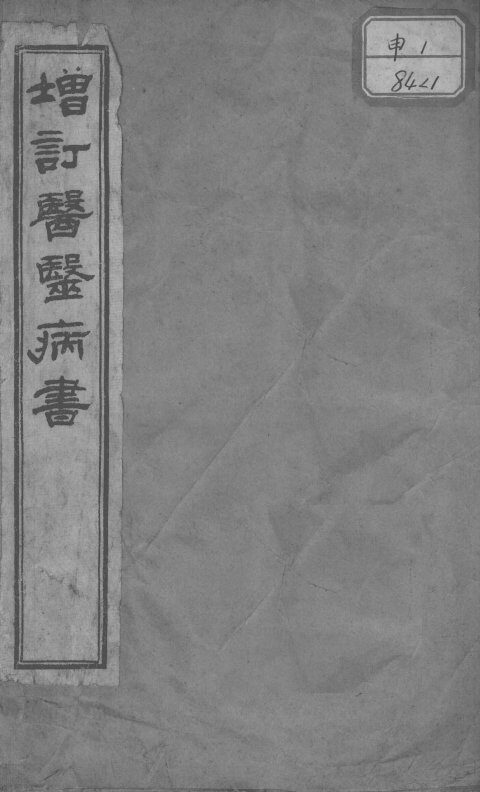 增訂醫毉病書
申 1
8421